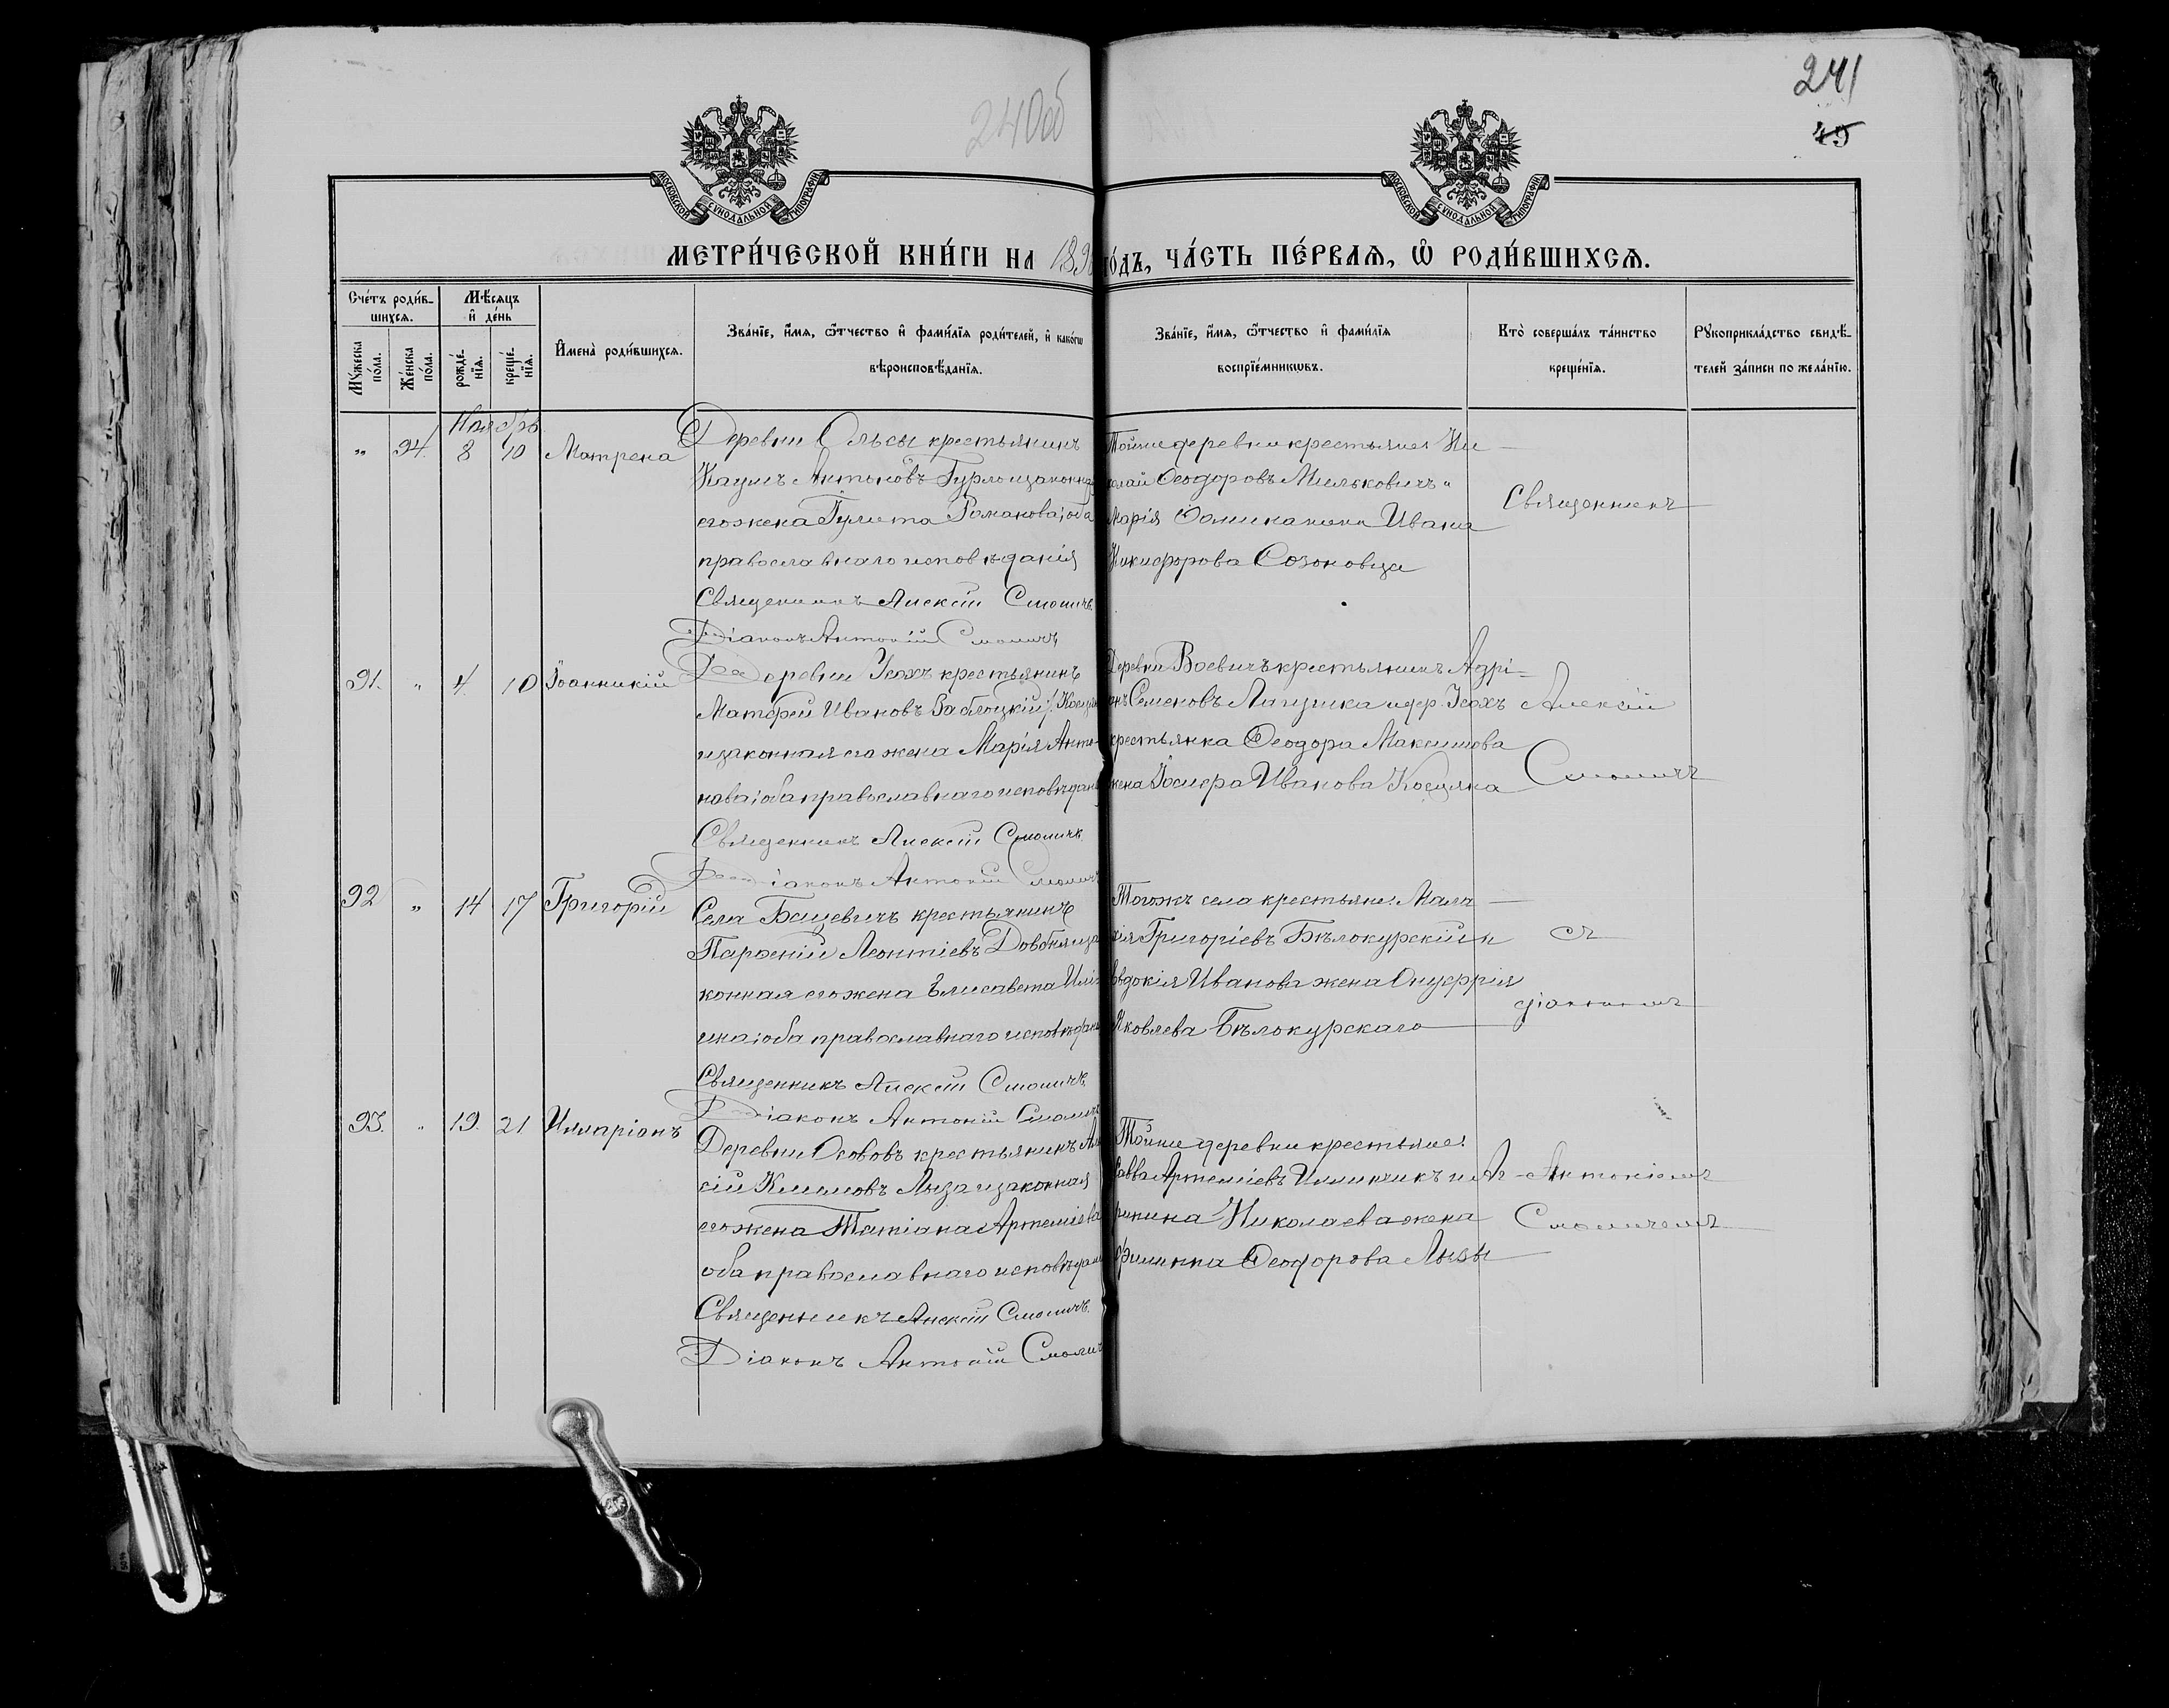 241
240об
45
МОСКОВСКОЙ СѴНОДАЛЬНОЙ ТИПОГРАФІИ
МОСКОВСКОЙ СѴНОДАЛЬНОЙ ТИПОГРАФІИ
МЕТРИ́ЧЕСКОЙ КНИ́ГИ НА 189 ГО́ДЪ, ЧА́СТЬ ПЕ́РВАѦ, Ѽ РОДИ́ВШИХСѦ.
Сче́тъ роди́в-
шихсѧ.
Мꙋ́жеска по́ла.
Же́нска по́ла.
Мѣ́сѧцъ
и҆ де́нь
рожде́-
нїѧ.
креще́-
нїѧ.
И҆мена̀ роди́вшихсѧ.
Зва́нїе, и҆́мѧ, ѻ҆́тчество и҆ фами́лїѧ роди́телей, и҆ како́гѡ
вѣроисповѣ́данїѧ.
Зва́нїе, и҆́мѧ, ѻ҆́тчество и҆ фами́лїѧ
воспрїе́мникѡвъ.
Кто̀ соверша́лъ та́инство
креще́нїѧ.
Рꙋкоприкла́дство свидѣ́-
телей за́писи по жела́нїю.
Ноябрь
„ 94. 8 10 Матрена
Деревни Ольсы крестьянинъ
Наумъ Антоновъ Гурло и законная
его жена Гулита Романова; оба
православнаго исповѣданія
Священникъ Алексій Смоличъ
Діаконъ Антоній Смоличъ
Тойже деревни крестьяне: Ни-
колай Ѳеодоровъ Мильковичъ и
Марія жена Ивана
Никифорова Созоновца
Священникъ
91. „ 4. 10 Іоанникій
Деревни Усохъ крестьянинъ
Матѳей Ивановъ Заблоцкій
и законная его жена Марія Анто-
нова; оба православнаго исповѣдан
Священникъ Алексій Смоличъ
Діаконъ Антоній Смоличъ
Деревни Воевичъ крестьянинъ Адрі-
анъ Семеновъ Лапушка и дер. Усохъ
крестьянка Ѳеодора Максимова
жена Іосифа Иванова Косцяка
Алексій
Смоличъ
92 „ 14 17 Григорій
Села Бацевичъ крестьянинъ
Парѳеній Леонтіевъ Довбня и за
конная его жена Елисавета Илі
ина; оба православнаго исповѣдані
Священникъ Алексій Смоличъ
Діаконъ Антоній Смоличъ
Тогожъ села крестьяне: Мала-
хія Григоріевъ Бѣлокурскій и
Евдокія Иванова жена Онуфрія
Яковлева Бѣлокурскаго
съ
діакономъ
93. „ 19. 21 Илларіонъ
Деревни Осововъ крестьянинъ Але
сій Климовъ Лыза и законная
его жена Татіана Артеміева
оба православнаго исповѣдан
Священникъ Алексій Смоличъ.
Діаконъ Антоній Смоличъ
Тойже деревни крестьяне:
Савва Артеміевъ и Аг-
рипина Николаева жена
Филиппа Ѳеодорова Лызы
Антоніемъ
Смоличемъ